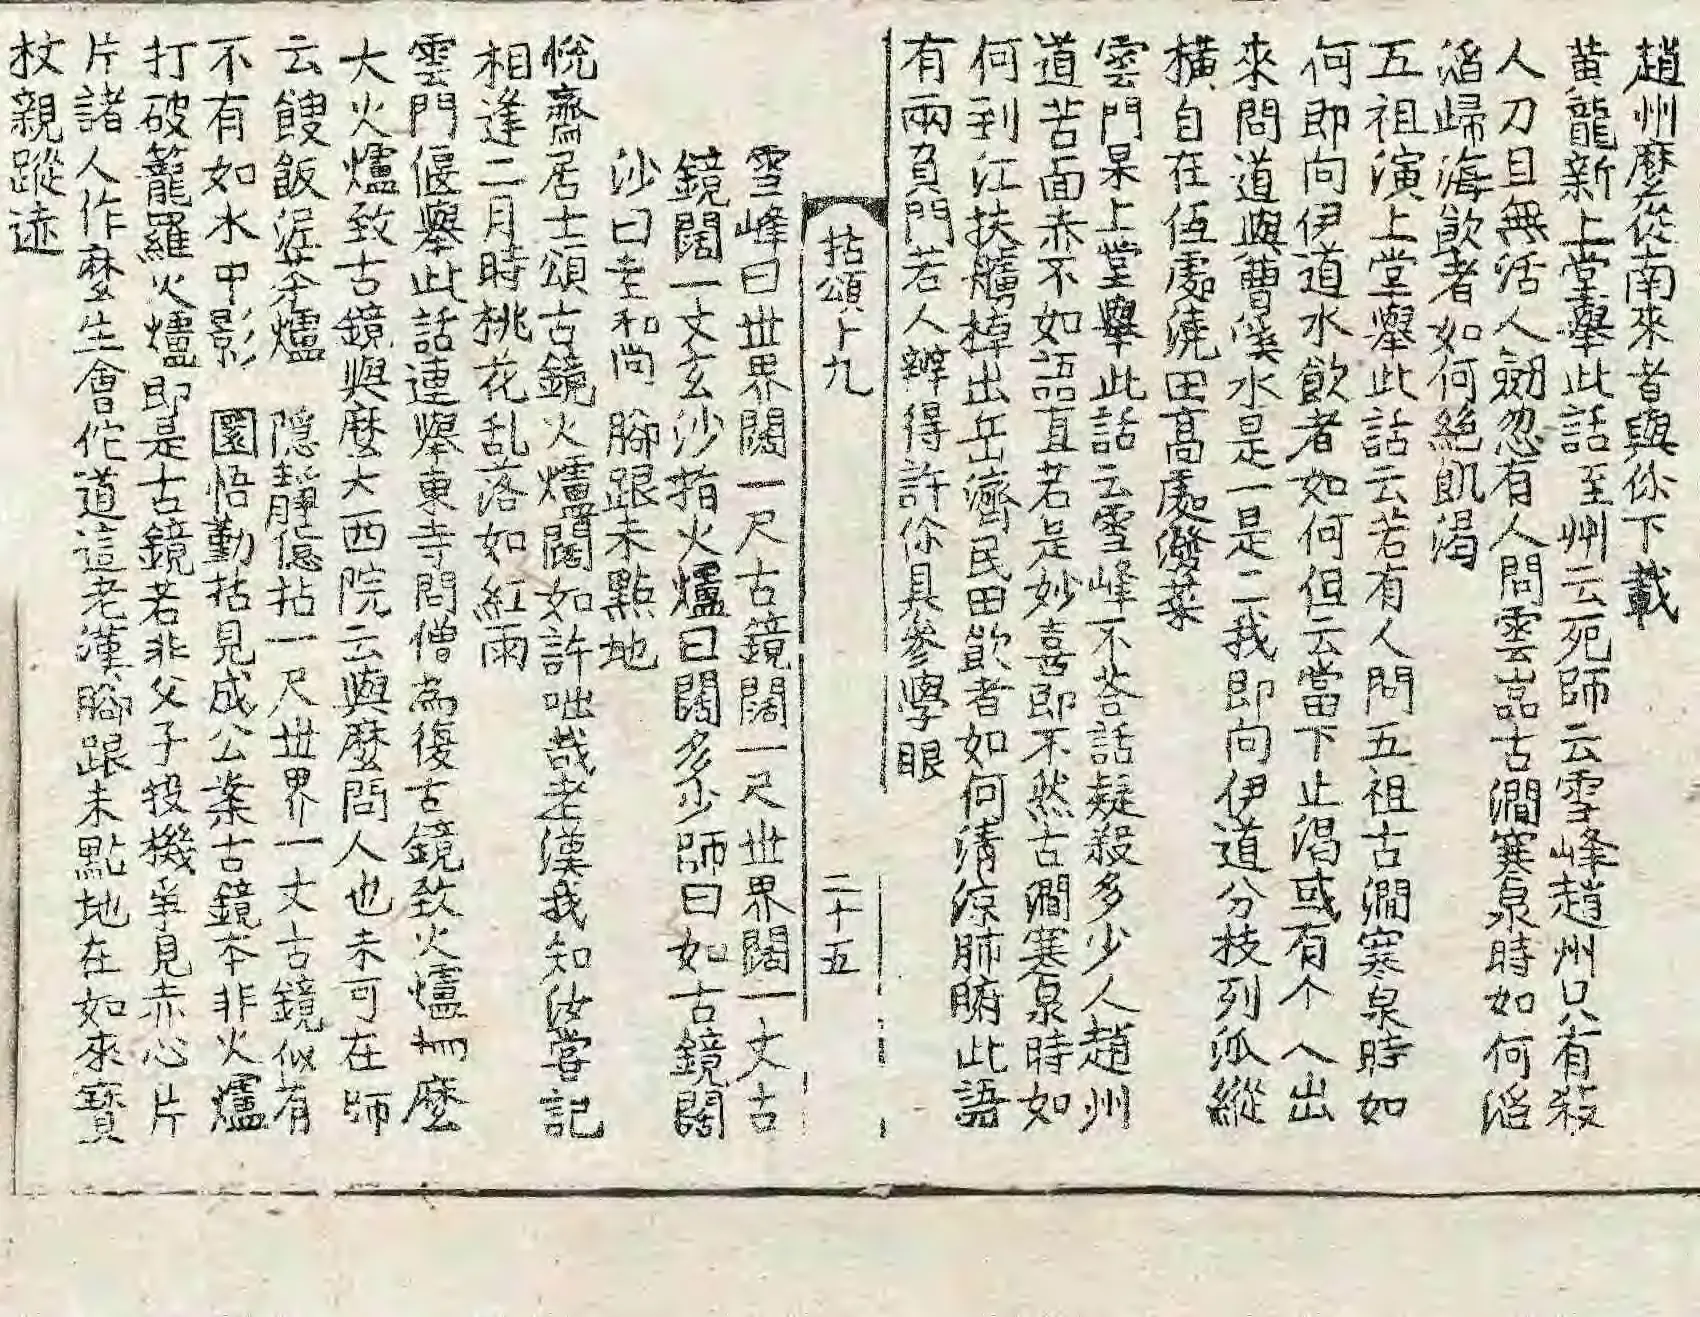 趙州麽從南來者與你下載
黃龍新上堂舉此話至州云死師云雪峰趙州只有殺
人刀且無活人劒忽有人問雲嵓古澗寒泉時如何滔
滔歸海飮者如何絶飢渴
五祖演上堂舉此話云若有人問五祖古澗寒泉時如
何即向伊道水飮者如何但云當下止渴或有个人出
來問道與曹溪水是一是二我即向伊道分枝列派縱
橫自在伍處澆田高處潑菜
雲門杲上堂舉此話云雪峰不荅話疑殺多少人趙州
道苦面赤不如語直若是妙喜即不然古澗寒泉時如
何到江扶艣棹出岳濟民田飮者如何清涼肺腑此語
有兩負門若人辨得許你具參學眼
拈頌十九
二十五
雪峰曰世界闊一尺古鏡闊一尺世界闊一丈古
鏡闊一丈玄沙指火爐曰闊多少師曰如古鏡闊
沙曰老和尚腳跟未點地
悅齋居士頌古鏡火爐闊如許咄哉老漢我知汝嘗記
相逢二月時桃花乱落如紅雨
雲門偃舉此話連舉東寺問僧為復古鏡致火爐恁麽
大火爐致古鏡與麽大西院云與麽問人也未可在師
云餿飯泥茶爐 隱静儼拈一尺世界一丈古鏡似有
不有如水中影 圜悟勤拈見成公案古鏡本非火爐
打破籠羅火爐即是古鏡若非父子投機爭見赤心片
片諸人作麽生會佗道這老漢腳跟未點地在如來寶
杖親蹤迹